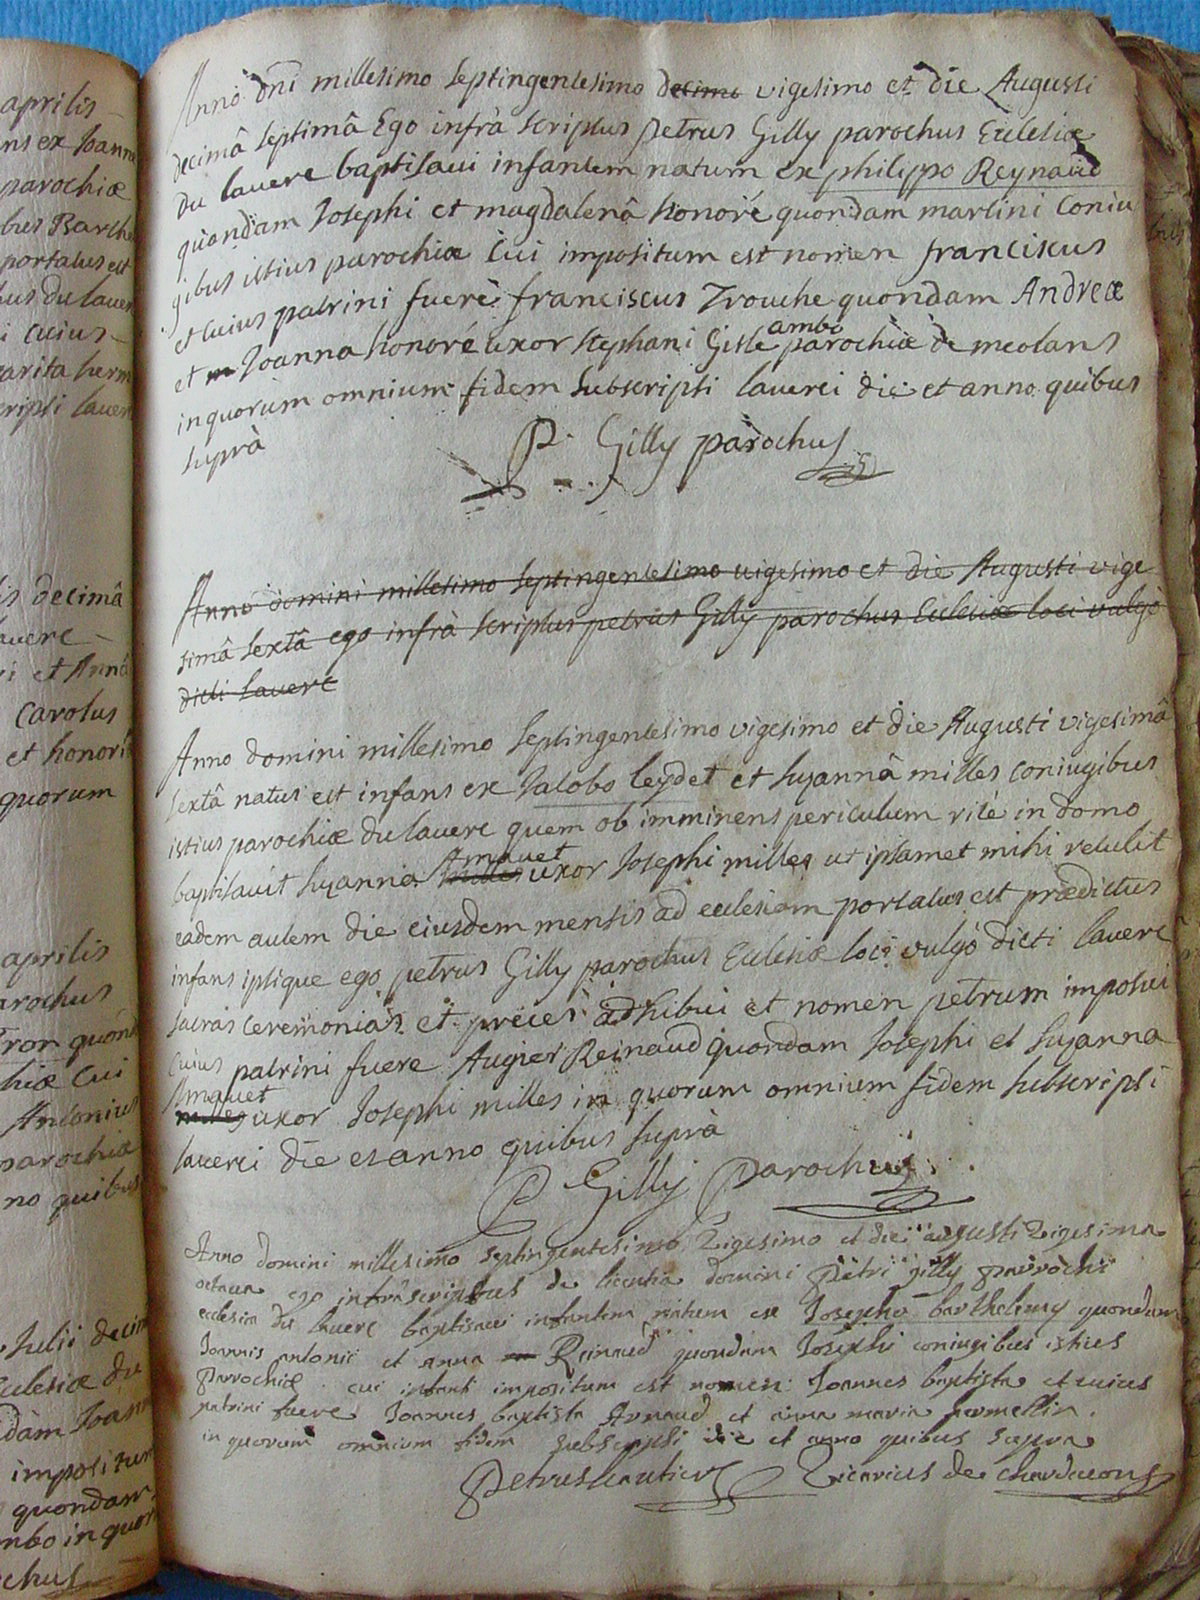 aprilis
ns ex Joanna
parochiæ
bus Barthe
portatus est
hus du lauer
i cuius
garita herm
cripsi laueri
is decimâ
lauere
ri et Annâ
Carolus
et honori
quorum
aprilis
arochus
Tron quond
hiæ cui
Antonius
parochiæ
no quibus
Julii decim
Ecclesiæ du
dam Joann
impositum
quondam
ambo in quor
ochus
Anno dni millesimo septingentesimo decimo vigesimo et die Augusti
decimâ septimâ Ego infrà scriptus petrus Gilly parochus Ecclesiæ
du lauere baptisaui infantem natum ex philippo Reynaud
quondam Josephi et magdalenâ honoré quondam martini coniu
gibus istius parochiæ cui impositum est nomen franciscus
et cuius patrini fuere franciscus Trouche quondam Andreæ
et m Joanna honoré uxor stephani Gisle ambo parochiæ de meolans
in quorum omnium fidem subscripsi lauerci die et anno quibus
suprà
P. Gilly parochus
Anno domini millesimo septingentesimo uigesimo et die Augusti vige
simâ sextâ ego infrà scriptus petrus Gilly parochus Ecclesiæ loci vulgò
dicti lauere
Anno domini millesimo septingentesimo vigesimo et die Augusti vigesimâ
sextâ natus est infans ex Jacobo leydet et suzannâ milles coniugibus
istius parochiæ du lauere quem ob imminens periculum ritè in domo
baptisauit suzanna milles Amauet uxor Josephi milles ut ipsamet mihi retulit
eadem autem die eiusdem mensis ad ecclesiam portatus est prædictus
infans ipsique ego petrus Gilly parochus Ecclesiæ loci vulgò dicti lauere
sacras ceremonias et preces adhibui et nomen petrum imposui
cuius patrini fuere Augier Reinaud quondam Josephi et suzanna
milles Amauet uxor Josephi milles in quorum omnium fidem subscripsi
lauerci die et anno quibus suprà
P Gilly Parochus
Anno domini millesimo septingentesimo Vigesimo et die augusti Vigesima
octaua ego infrâ scriptus de licentia domini Petri gilly parrochi
ecclesiæ du lauere baptisaui infantem natum ex Josepho barthelemy quondam
Joannis antonii et anna Reinaud quondam Josephi coniugibus istius
Parrochiæ cui infanti impositum est nomen Joannes baptista et cuius
patrini fuere Joannes baptista Arnaud et anna maria hermellin.
in quorum omnium fidem subscripsi die et anno quibus supra
Petrus Gautier Vicarius de chardauons